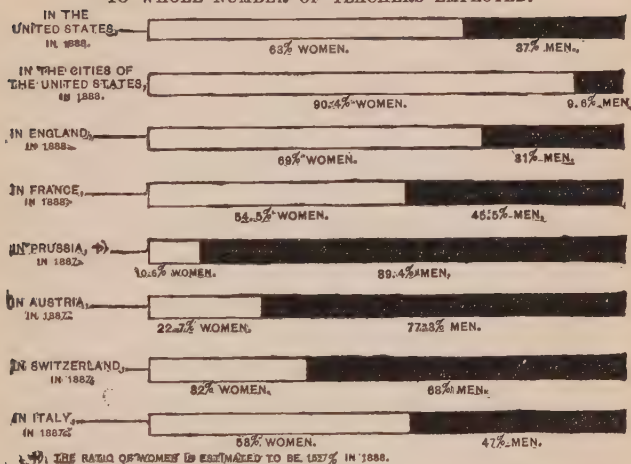 TO WHOLE NUMBER OF TEACHERS EMPLOYED.
IN THE
UNITED STATES,
IN 1888.
63% WOMEN. 37% MEN.
IN THE CITIES OF
THE UNITED STATES,
IN 1888.
90.4% WOMEN. 9.6% MEN
IN ENGLAND,
IN 1888.
69% WOMEN. 31% MEN.
IN FRANCE,
IN 1888.
54.5% WOMEN. 45.5% MEN.
IN PRUSSIA,
IN 1887.
10.6% WOMEN. 89.4% MEN,
IN AUSTRIA,
IN 1887.
22.7% WOMEN. 77.3% MEN.
IN SWITZERLAND,
IN 1887.
32% WOMEN. 68% MEN.
IN ITALY,
IN 1887.
53% WOMEN. 47% MEN.
THE RATIO OF WOMEN IS ESTIMATED TO BE IN 1888.